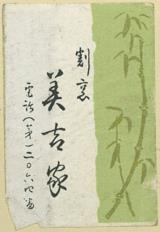 割烹
美古家
電話(茅)二〇六四番